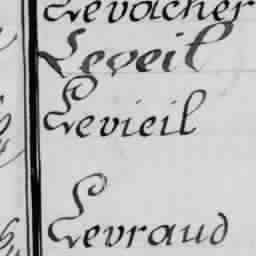 Levacher
Leveil
Levieil
Levraud